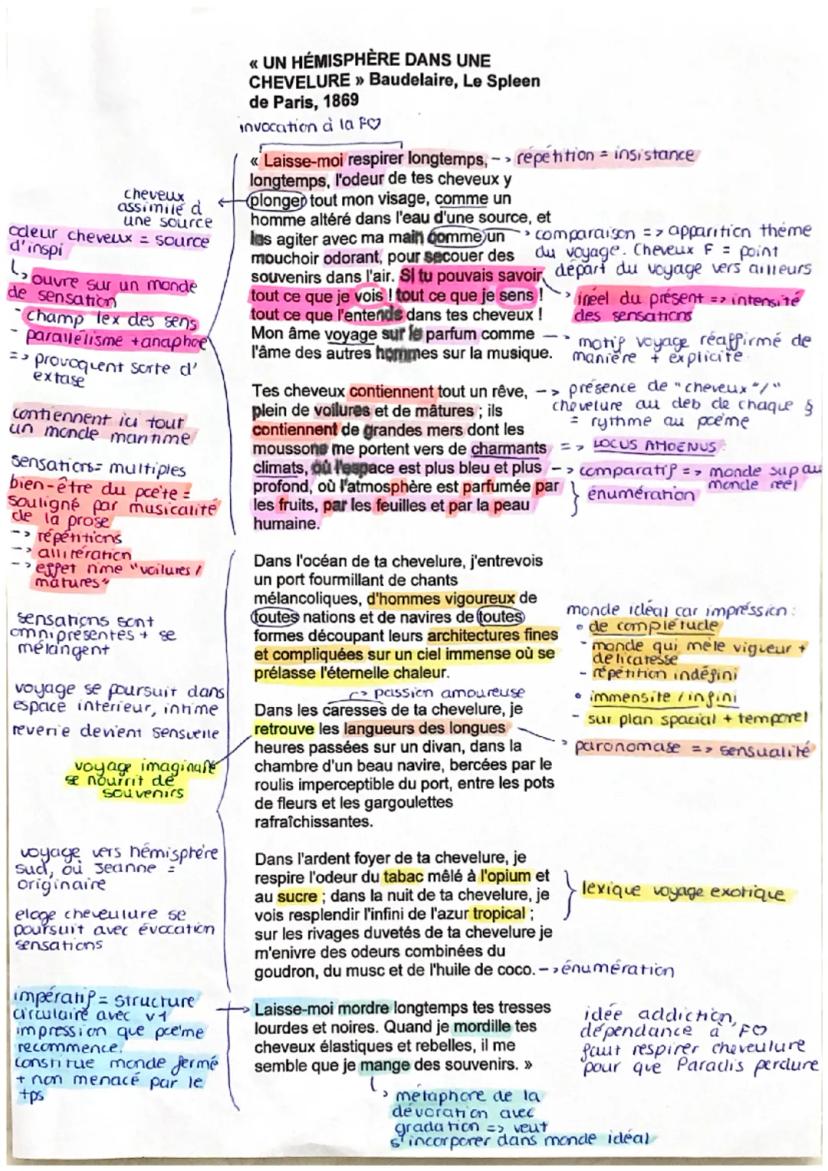 « UN HÉMISPHÈRE DANS UNE
CHEVELURE » Baudelaire, Le Spleen
de Paris, 1869
invocation à la F♡
« Laisse-moi respirer longtemps,
longtemps, l'odeur de tes cheveux y
plonger tout mon visage, comme un
homme altéré dans l'eau d'une source, et
les agiter avec ma main comme un
mouchoir odorant, pour secouer des
souvenirs dans l'air. Si tu pouvais savoir
tout ce que je vois ! tout ce que je sens !
tout ce que l'entends dans tes cheveux !
Mon âme voyage sur le parfum comme
l'âme des autres hommes sur la musique.
-> répétition = insistance
cheveux
assimilé à
une source
odeur cheveux = source
d'inspi
↳ ouvre sur un monde
de sensation
- champ lex des sens
- parallélisme + anaphoe
=> provoquent sorte d'
extase
comparaison => apparition thème
du voyage. Cheveux F = point
départ du voyage vers ailleurs
irréel du présent => intensité
des sensations
-> motif voyage réaffirmé de
manière + explicite
Tes cheveux contiennent tout un rêve,
plein de voilures et de mâtures ; ils
contiennent de grandes mers dont les
moussons me portent vers de charmants
climats, où l'espace est plus bleu et plus
profond, où l'atmosphère est parfumée par
les fruits, par les feuilles et par la peau
humaine.
contiennent ici tout
un monde maritime
sensations = multiples
bien-être du poète =
souligné par musicalité
de la prose
-> répétitions
-> allitération
-> effet rime "voilures /
mâtures"
-> présence de "cheveux"/"
chevelure au deb de chaque §
= rythme au poème
=> LOCUS AMOENUS
-> comparatif => monde sup au
monde réel
énumération
Dans l'océan de ta chevelure, j'entrevois
un port fourmillant de chants
mélancoliques, d'hommes vigoureux de
toutes nations et de navires de toutes
formes découpant leurs architectures fines
et compliquées sur un ciel immense où se
prélasse l'éternelle chaleur.
sensations sont
omniprésentes + se
mélangent
voyage se poursuit dans
espace intérieur, intime
reverie devient sensuelle
monde idéal car impression :
• de complétude
- monde qui mêle vigueur +
délicatesse
- répétition indéfini
• immensité / infini
- sur plan spacial + temporel
-> passion amoureuse
Dans les caresses de ta chevelure, je
retrouve les langueurs des longues
heures passées sur un divan, dans la
chambre d'un beau navire, bercées par le
roulis imperceptible du port, entre les pots
de fleurs et les gargoulettes
rafraîchissantes.
voyage imaginaire
se nourrit de
souvenirs
paronomase => sensualité
Dans l'ardent foyer de ta chevelure, je
respire l'odeur du tabac mêlé à l'opium et
au sucre ; dans la nuit de ta chevelure, je
vois resplendir l'infini de l'azur tropical ;
sur les rivages duvetés de ta chevelure je
m'enivre des odeurs combinées du
goudron, du musc et de l'huile de coco.
voyage vers hémisphère
sud, où Jeanne =
originaire
eloge cheveulure se
poursuit avec évocation
sensations
lexique voyage exotique
-> énumération
Laisse-moi mordre longtemps tes tresses
lourdes et noires. Quand je mordille tes
cheveux élastiques et rebelles, il me
semble que je mange des souvenirs. »
impératif = structure
circulaire avec v1
impression que poème
recommence.
constitue monde fermé
+ non menacé par le
tps
idée addiction,
dépendance à F♡
faut respirer cheveulure
pour que Paradis perdure
métaphore de la
dévoration avec
gradation => veut
s'incorporer dans monde idéal